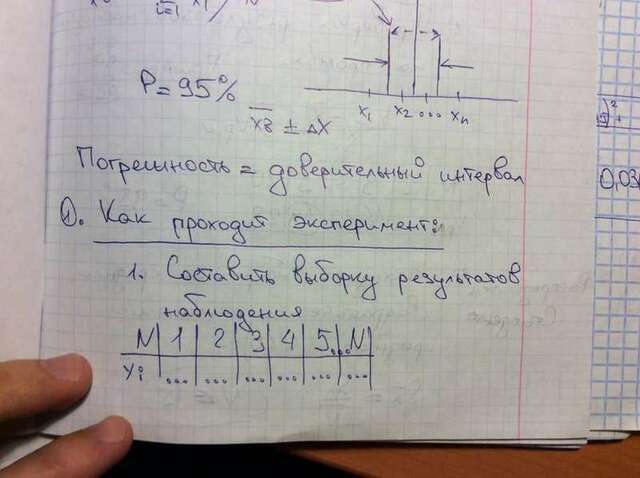 i=1
P = 95%
x₁ x₂ ... xₙ
x̅в ± Δx
Погрешность = доверительный интервал
0,03
①. Как проходит эксперимент:
1. Составить выборку результатов
наблюдения
N | 1 | 2 | 3 | 4 | 5 ... N
yi | ... | ... | ... | ... | ... | ...